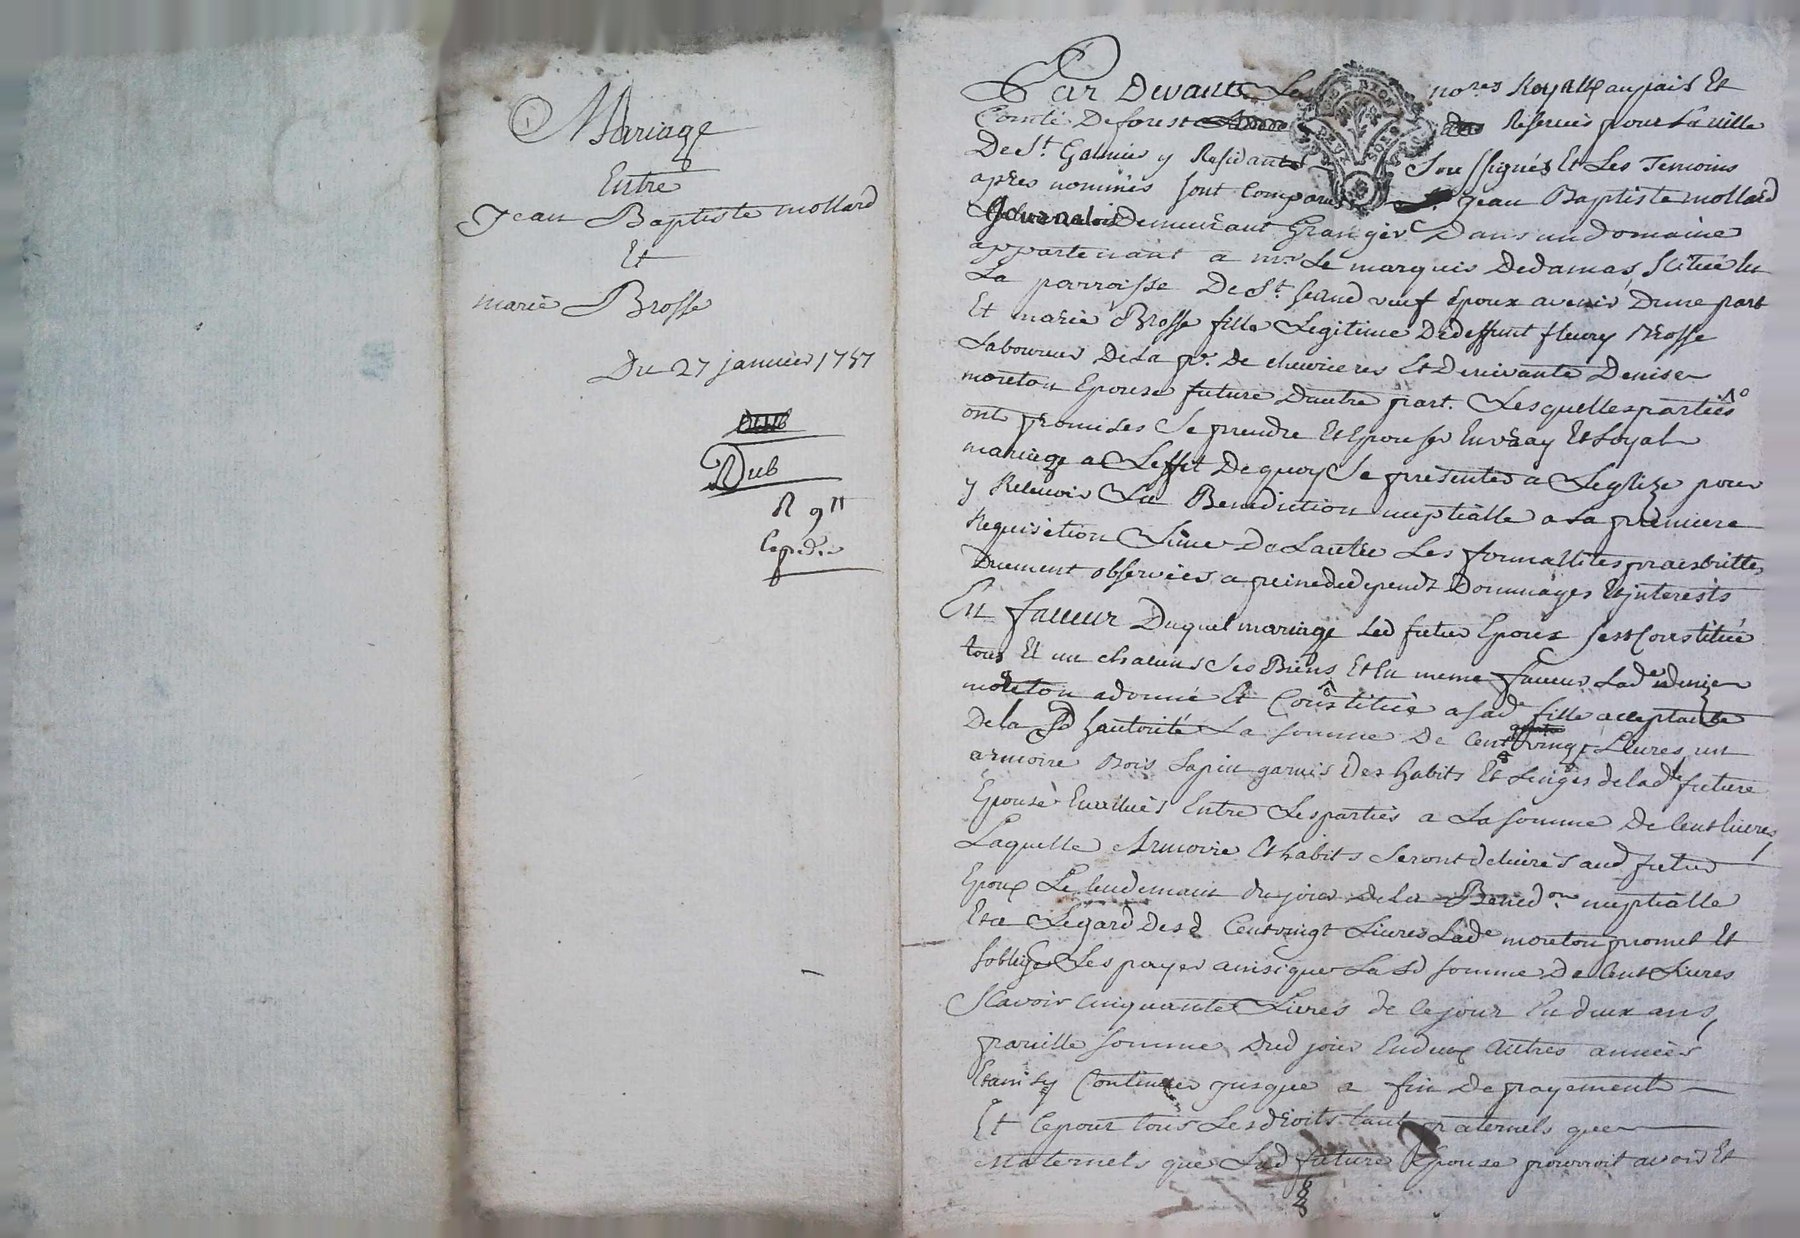 Mariage
Entre
Jean Baptiste mollard
Et
marie Brosse
Du 27 janvier 1757
Dub
R 9tt
Expedié
Par Devant Les nores Royaux au pais Et
Comté De forest Réservés pour La ville
De St. Galmier y Residants soussignés Et Les Temoins
apres nommés sont comparus Sr. Jean Baptiste mollard
Demeurant Granger Dans un Domaine
appartenant a mr Le marquis Dedamas, scitué en
La parroisse De St. veuf Epoux avenir Dune part
Et marie Brosse fille Legitime De deffunt fleury Brosse
Laboureur De La pr. De chevrieres Et De vivante Denise
moreton Epouse future Dautre part. Lesquelles parties
ont promis de Se prendre Et Epouser En vray Et Loyal
mariage a Leffet De quoy Se presenter a Leglize pour
y Recevoir La Benediction nuptialle a La premiere
Requisition Lune De Lautre Les formallites prescrittes
Duement observées a peine de depends Dommages Et interests
En faveur Duquel mariage Led futur Epoux sest Constitué
tous Et un chacuns Ses Biens Et En meme faveur Lade denize
moreton a donné Et Constitué a sade fille acceptante
De la Sd hautorité La somme De Cent vingt Livres, un
armoire Bois Sapin garnis Des habits Et Linges de lade future
Epouse Evallués Entre Les parties a La somme De Cent livres
Laquelle Armoire Et habits Seront delivrés aud futur
Epoux Le lendemain du jour de La Bened.on nuptialle
Et a Legard Desd Cent vingt Livres Lade moreton promet Et
soblige Les payer ainsi que La Sd somme De Cent Livres
Scavoir Cinquante Livres de ce jour En deux ans,
pareille somme Dud jour En deux autres années
Et ainsy Continuer jusque a fin De payement
Et Ce pour tous Les droits tant paternels que
Maternels que Lad future Epouse pourroit avoir Et